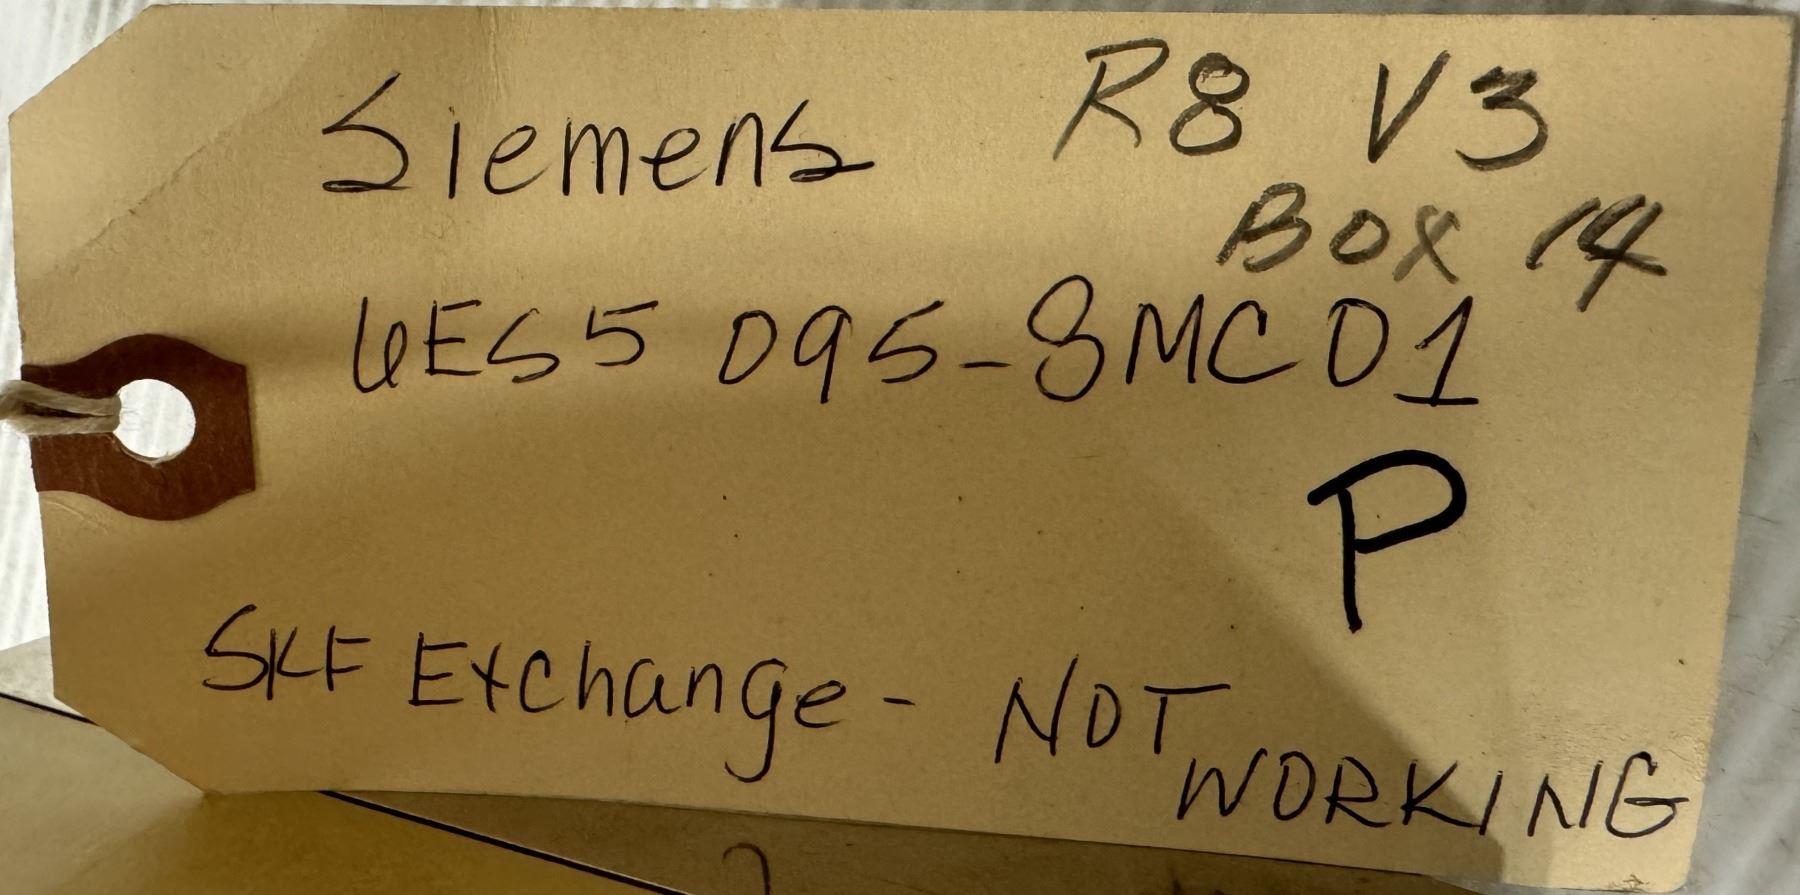 Siemens R8 V3
Box 14
6ES5 095-8MC01
P
SKF Exchange - NOT
WORKING